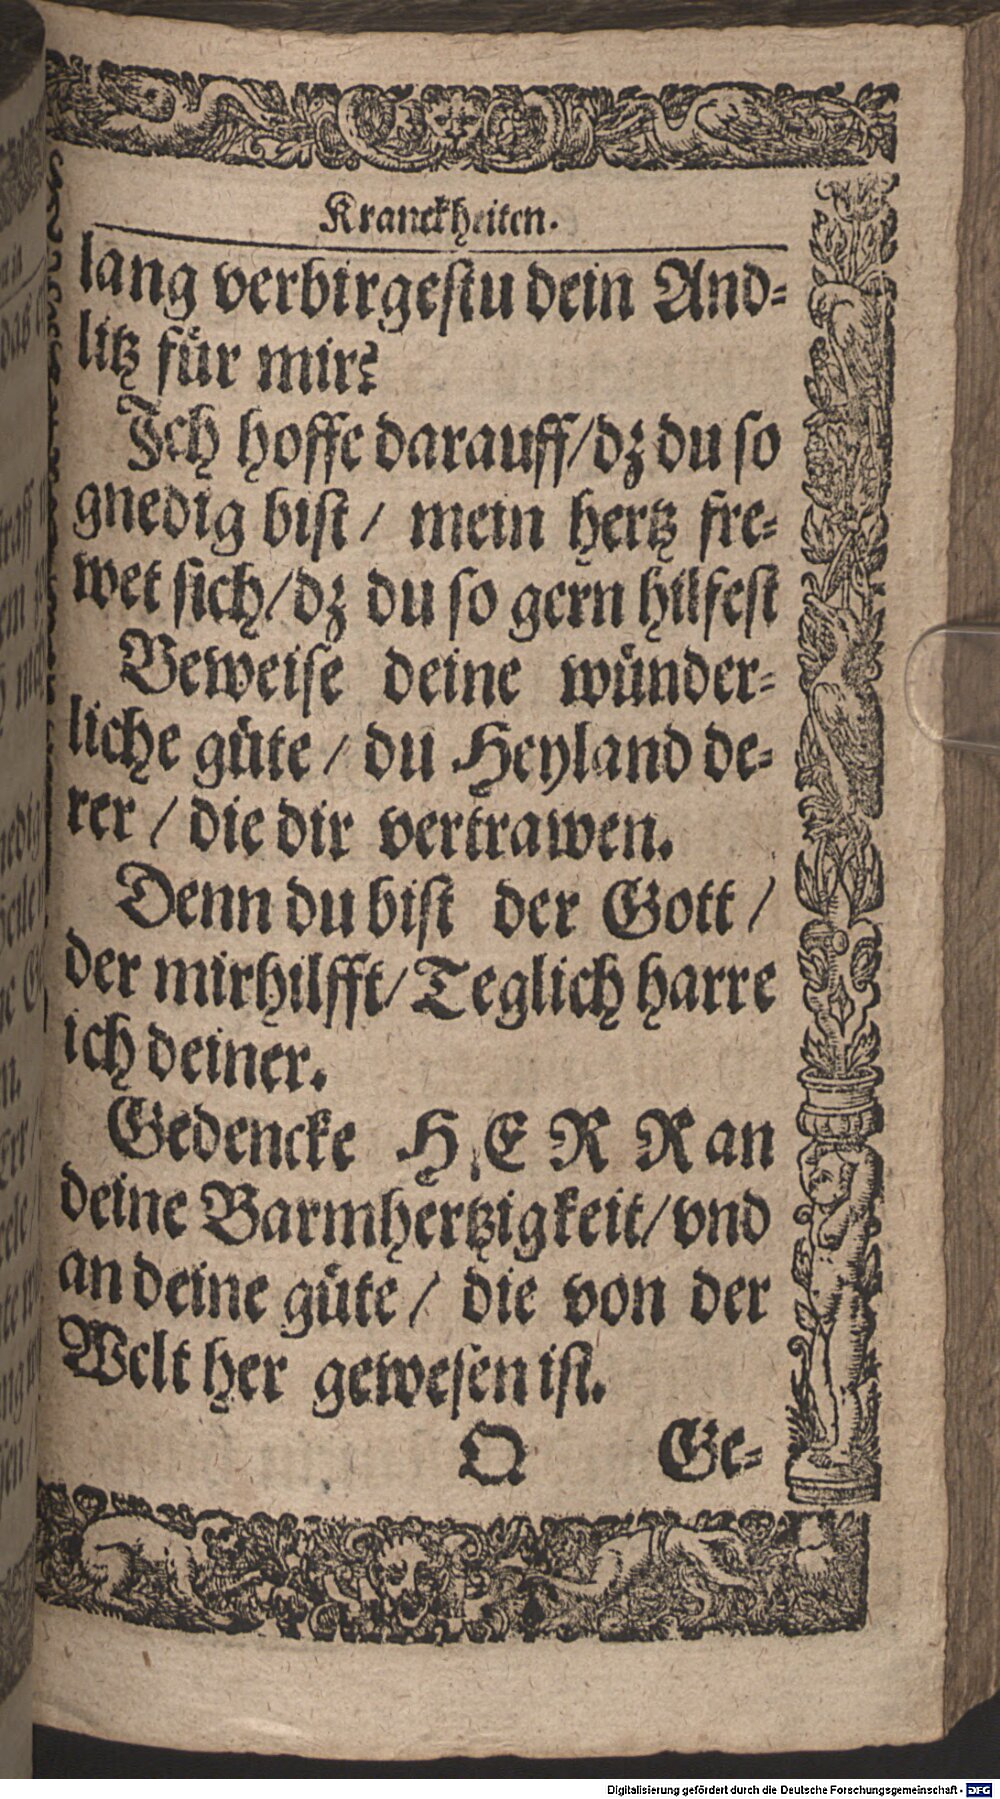 Kranckheiten.
lang verbirgestu dein And-
litz für mir?
Ich hoffe darauff/dz du so
gnedig bist/ mein hertz fre-
wet sich/dz du so gern hilfest
Beweise deine wünder-
liche güte / du Heyland de-
rer / die dir vertrawen.
Denn du bist der Gott /
der mir hilfft/ Teglich harre
ich deiner.
Gedencke HERR an
deine Barmhertzigkeit/ vnd
an deine güte / die von der
Welt her gewesen ist.
O Ge-
Digitalisierung gefördert durch die Deutsche Forschungsgemeinschaft - DFG